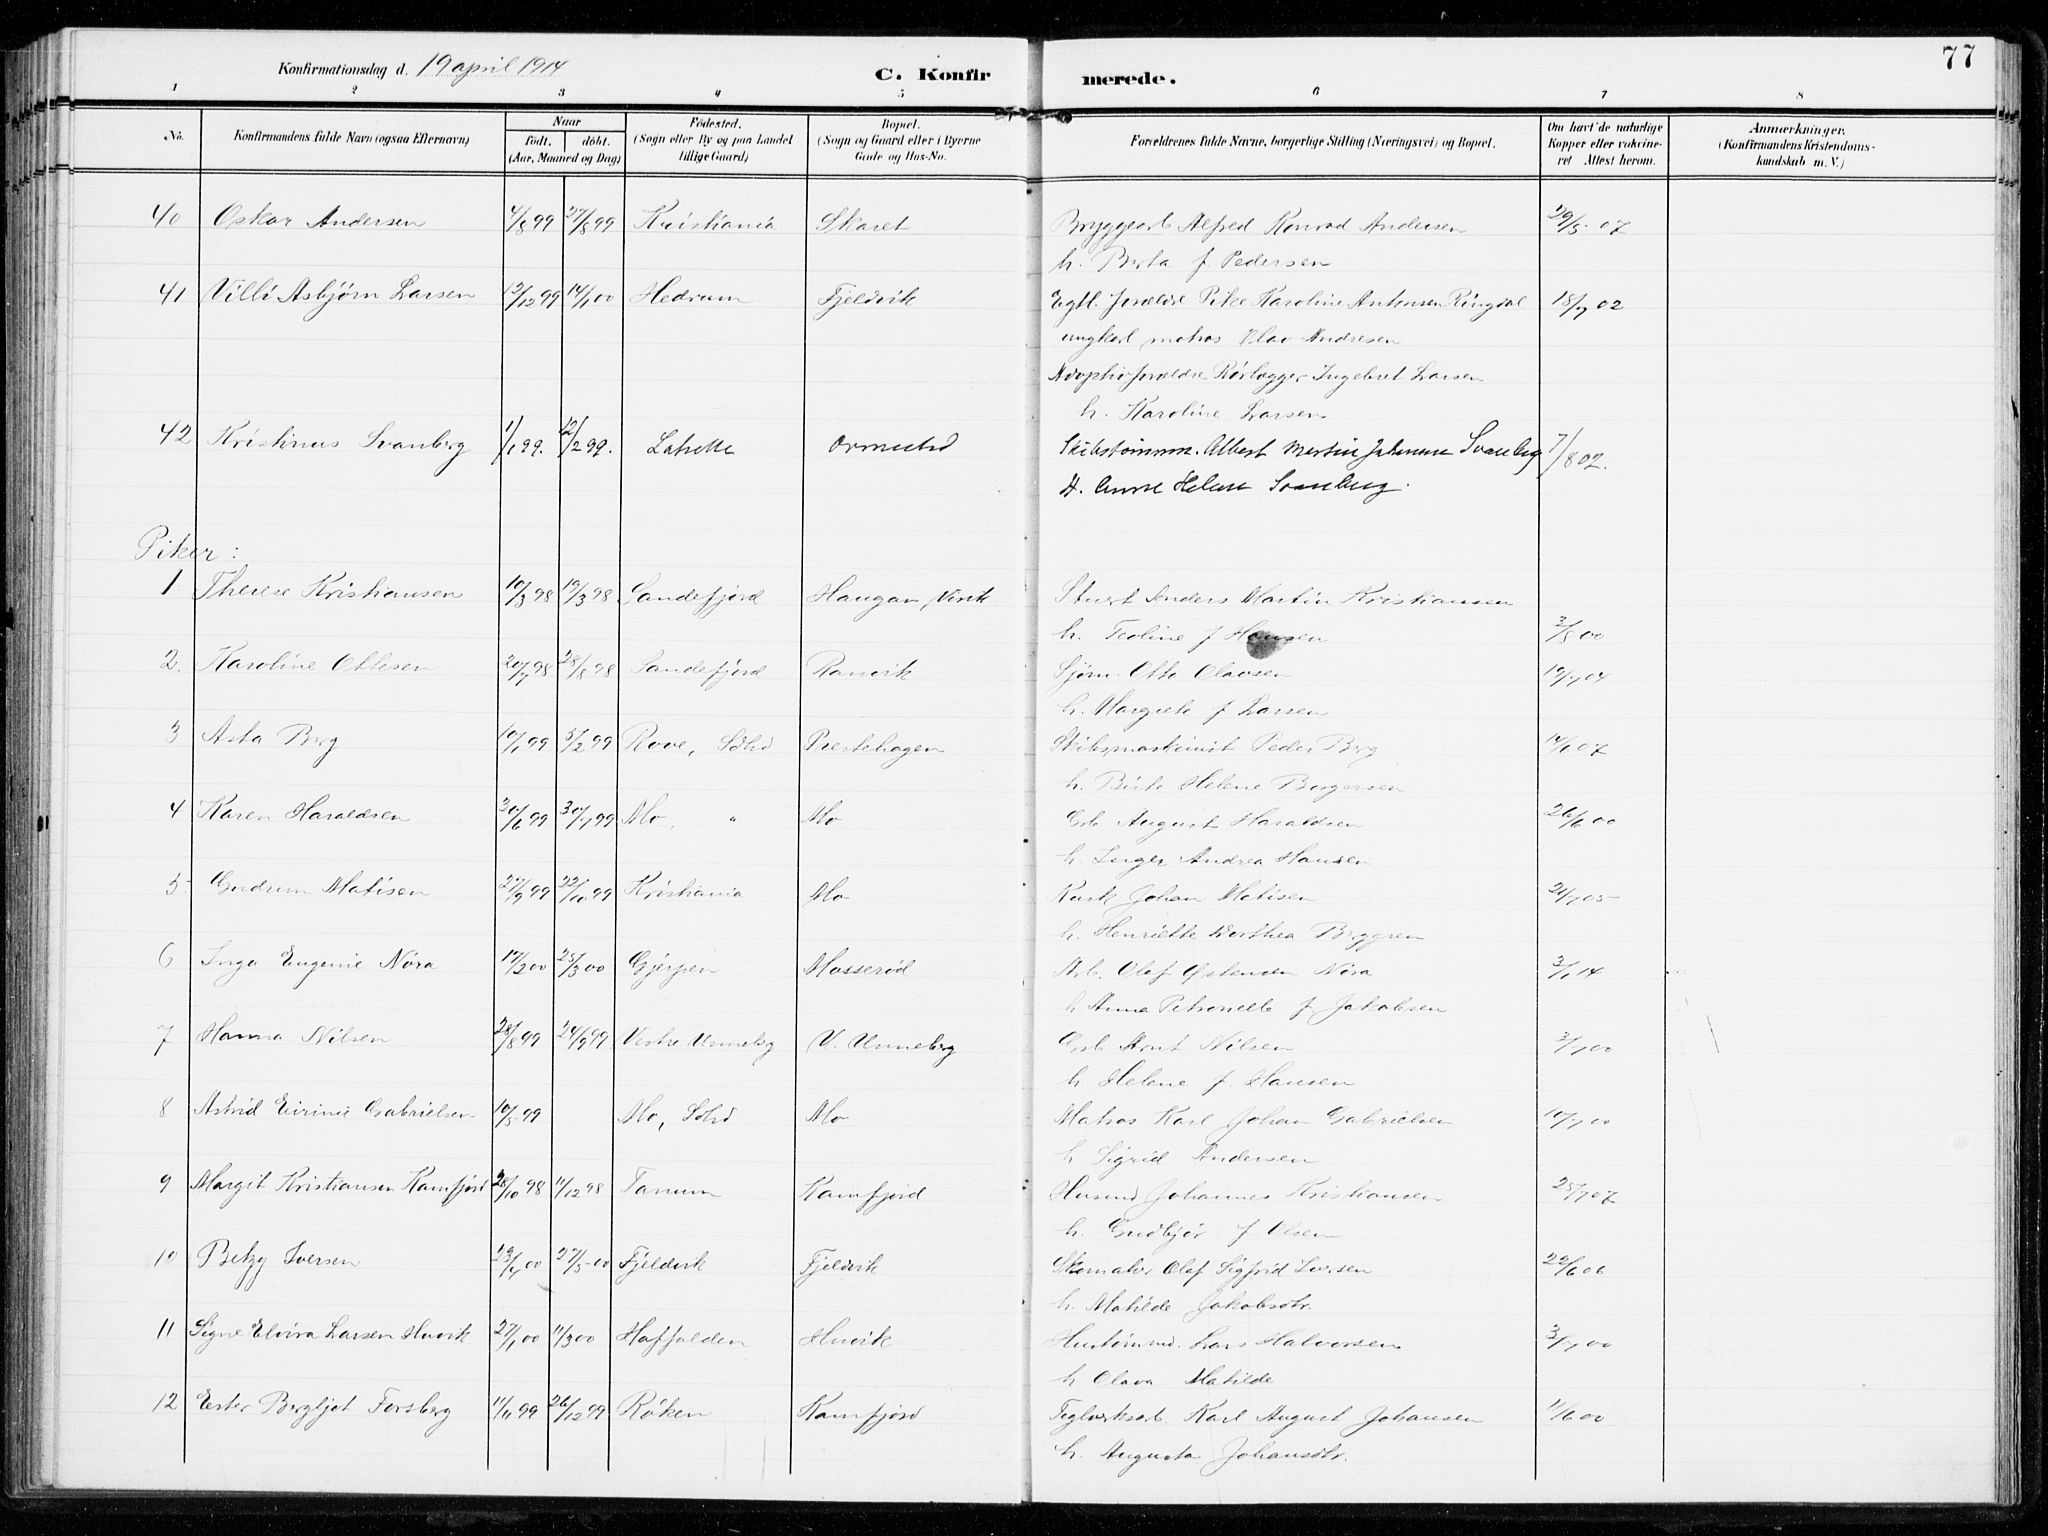 77
Konfirmationsdag d. 19 april 1914
C. Konfirmerede.
1 2 3 4 5 6 7 8
No.
Konfirmandens fulde Navn (ogsaa Efternavn)
Naar
født. døbt.
(Aar, Maaned og Dag)
Fødested.
(Sogn eller By og paa Landet
tillige Gaard)
Bopæl.
(Sogn og Gaard eller i Byerne
Gade og Hus-No.
Forældrenes fulde Navne, borgerlige Stilling (Næringsvei) og Bopæl.
Om havt de naturlige
Kopper eller vakcine-
ret Attest herom.
Anmærkninger.
(Konfirmandens Kristendoms-
kundskab m. V.)
40 Oskar Andersen 4/8 99 27/8 99 Kristiania Skaret Bryggearb Alfred Konrad Andersen 29/5 07
h. Berta f. Pedersen
41 Villi Asbjørn Larsen 12/12 99 14/1 00 Hedrum Fjeldvik Egtl. forældre Pike Karoline Antonsen Ringdal 18/7 02
ungkarl matros Olav Andresen
Adoptivforældre Rørlægger Ingebret Larsen
h. Karoline Larsen
42 Kristinus Svanberg 1/1 99. 12/2 99. Ormestad Skibstømm. Albert Martin Johannes Svanberg 7/8 02.
H. Anne Helene Svanberg.
Piker:
1 Therese Kristiansen 10/3 98 19/3 98 Sandefjord Haugan, Virik Stuert Anders Martin Kristiansen
h. Teoline f Hansen 3/8 00
2. Karoline Ottesen 20/7 98 28/8 98 Sandefjord Ranvik Sjøm. Otto Olavsen 19/7 04
h. Margrete f Larsen
3 Asta Berg 10/1 99 5/2 99 Rove, Sdhd Prestehagen Skibsmaskinist Peder Berg 14/6 07
h. Birte Helene Borgersen
4 Karen Haraldsen 30/6 99 30/7 99 Mo, " Mo Arb August Haraldsen 26/6 00
h. Inger Andrea Hansen
5 Gudrun Matisen 27/9 99 22/10 99 Kristiania Mo Kusk Johan Matisen 21/7 05
h. Henriette Dorthea Berggren
6 Inga Eugenie Nóra 17/2 00 25/3 00 Gjerpen Mosserød Arb. Olaf Østensen Nóra 3/1 14
h Anna Petronelle f. Jakobsen
7 Hanna Nilsen 28/8 99 24/9 99 Vestre Unneberg V. Unneberg Arb Arnt Nilsen 3/7 00
h Helene f. Hansen
8 Astrid Eirinie Gabrielsen 10/5 99 Mo, Sdhd Mo Matros Karl Johan Gabrielsen 10/7 00
h. Sigrid Andersen
9 Margit Kristiansen Kamfjord 28/10 98 11/12 98 Tanum Kamfjord Husmd Johannes Kristiansen 25/7 07
h. Gudbjør f. Olsen
10 Betzy Iversen 23/4 00 27/5 00 Fjeldvik Fjeldvik Skomaker Olaf Sigfrid Iversen 22/6 06
h. Matilde Jakobsdtr.
11 Signe Elvira Larsen Huvik 27/1 00 11/3 00 Haffalden Huvik Hustømmd. Lars Halvorsen 3/7 00
h Olava Matilde
12 Ester Bergljot Forsberg 11/11 99 26/12 99 Røken Kamfjord Teglverksarb Karl August Johansen 11/6 00
h. Augusta Johansdtr.